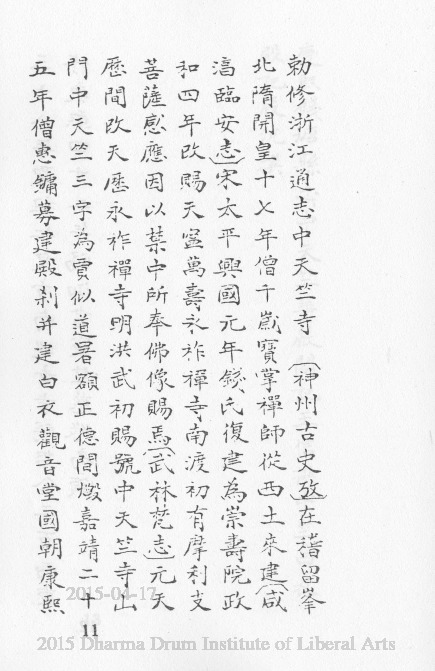 勅修浙江通志中天竺寺(神州古史攷在稽留峯
北隋開皇十七年僧千歲寶掌禪師從西土來建(咸
淓臨安志)宋太平興國元年錢氏復建為崇壽院政
和四年改賜天寍萬壽永祚禪寺南渡初有摩利支
菩薩感應因以禁中所奉佛像賜焉(武林梵志)元天
歷間改天歷永祚禪寺明洪武初賜號中天竺寺山
門中天竺三字為賈似道署額正德間燬嘉靖二十
五年僧惠鏞募建殿刹并建白衣觀音堂國朝康熙
11
2015-04-17
2015 Dharma Drum Institute of Liberal Arts